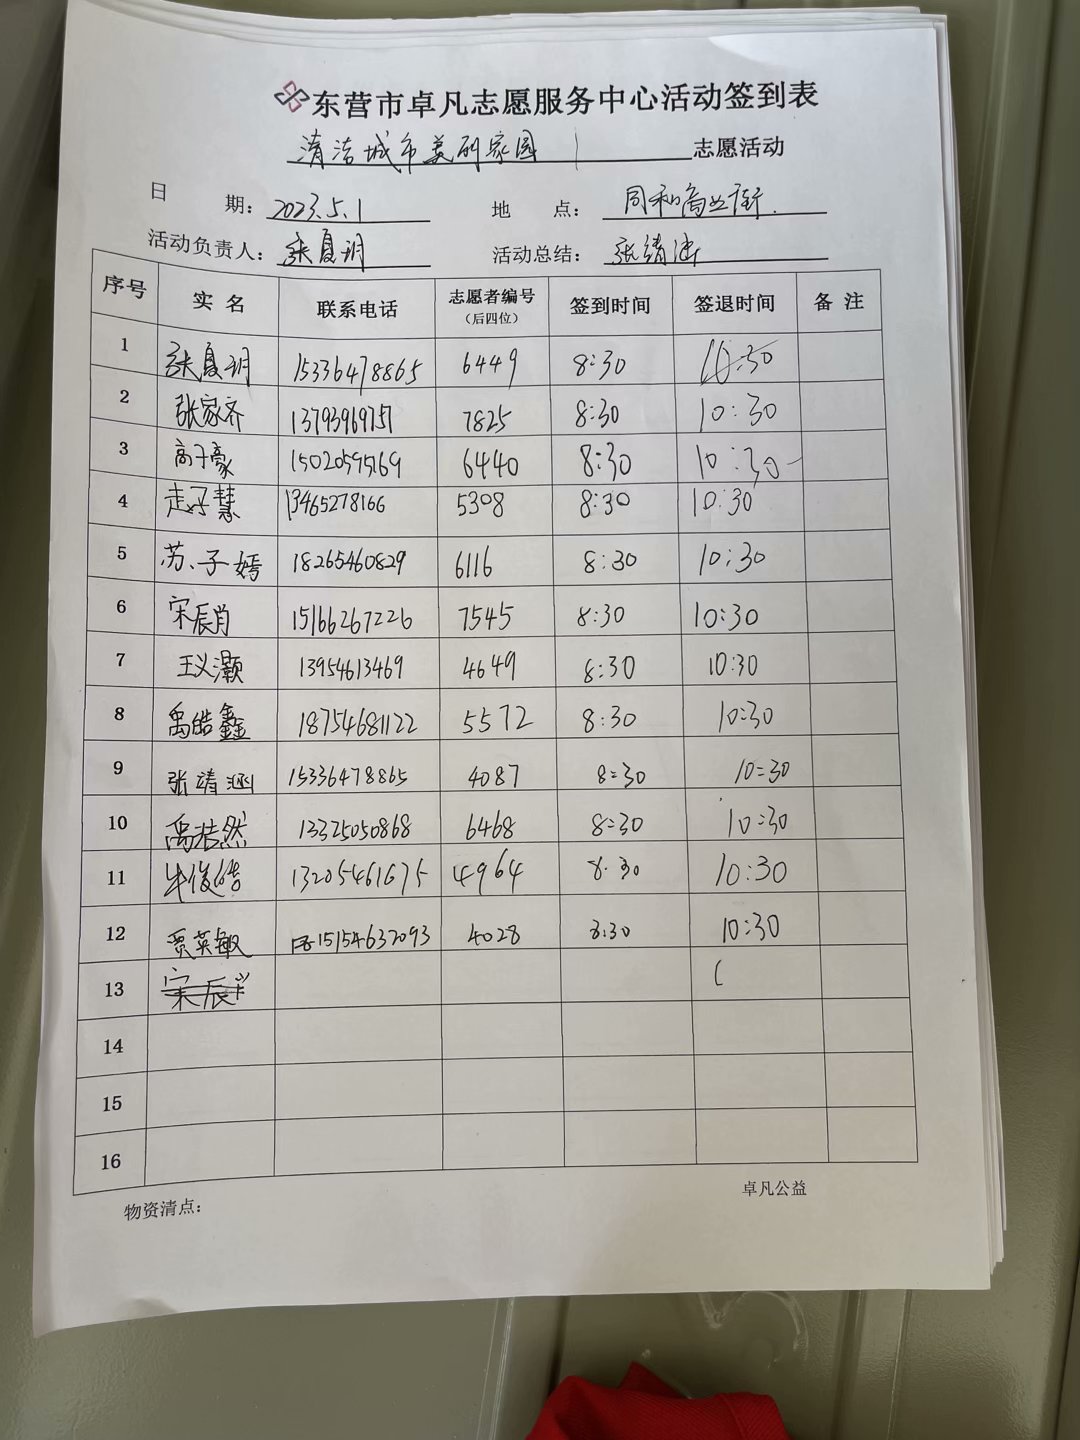 东营市卓凡志愿服务中心活动签到表
清洁城市美丽家园 志愿活动
日 期: 2023.5.1 地 点: 同和商业街.
活动负责人: 张夏玥 活动总结: 张靖涵
序号 实名 联系电话 志愿者编号(后四位) 签到时间 签退时间 备注
1 张夏玥 15336478865 6449 8:30 10:30
2 张家齐 13793969757 7825 8:30 10:30
3 高子豪 15020595769 6440 8:30 10:30
4 子慧 13465278166 5308 8:30 10:30
5 苏子嫣 18265460829 6116 8:30 10:30
6 宋辰肖 15166267226 7545 8:30 10:30
7 王义灏 13954613469 4649 8:30 10:30
8 禹皓鑫 18754681122 5572 8:30 10:30
9 张靖涵 15336478865 4087 8:30 10:30
10 禹浩然 13325050868 6468 8:30 10:30
11 牛俊皓 13205461675 4964 8:30 10:30
12 贾英敏 15154637093 4028 8:30 10:30
13 宋辰
14
15
16
物资清点:
卓凡公益